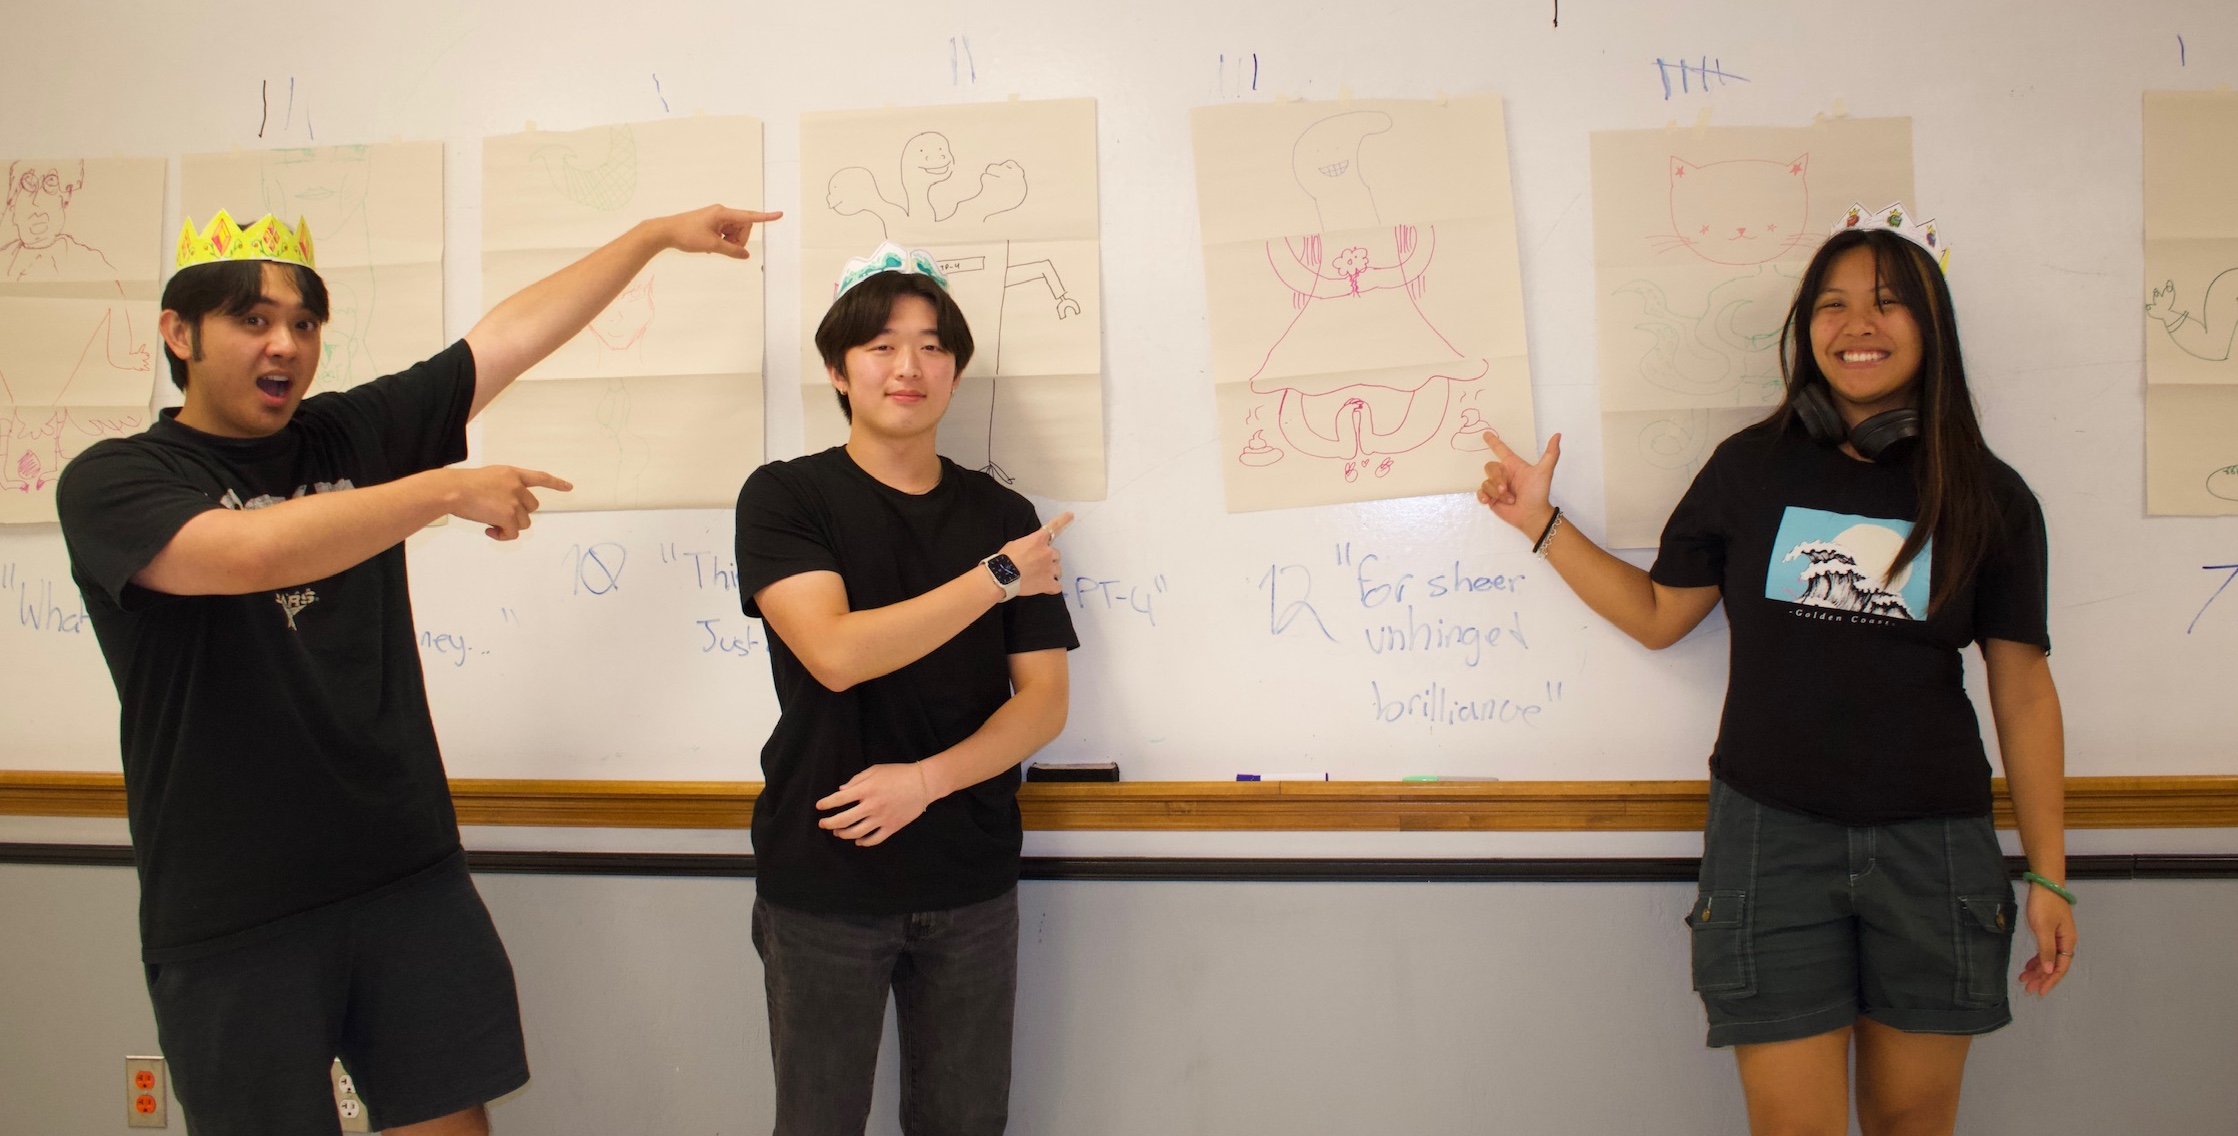 "What
ney..."
10
"Thi
Just
PT-4"
12
"for sheer
unhinged
brilliance"
7
-Golden Coast-